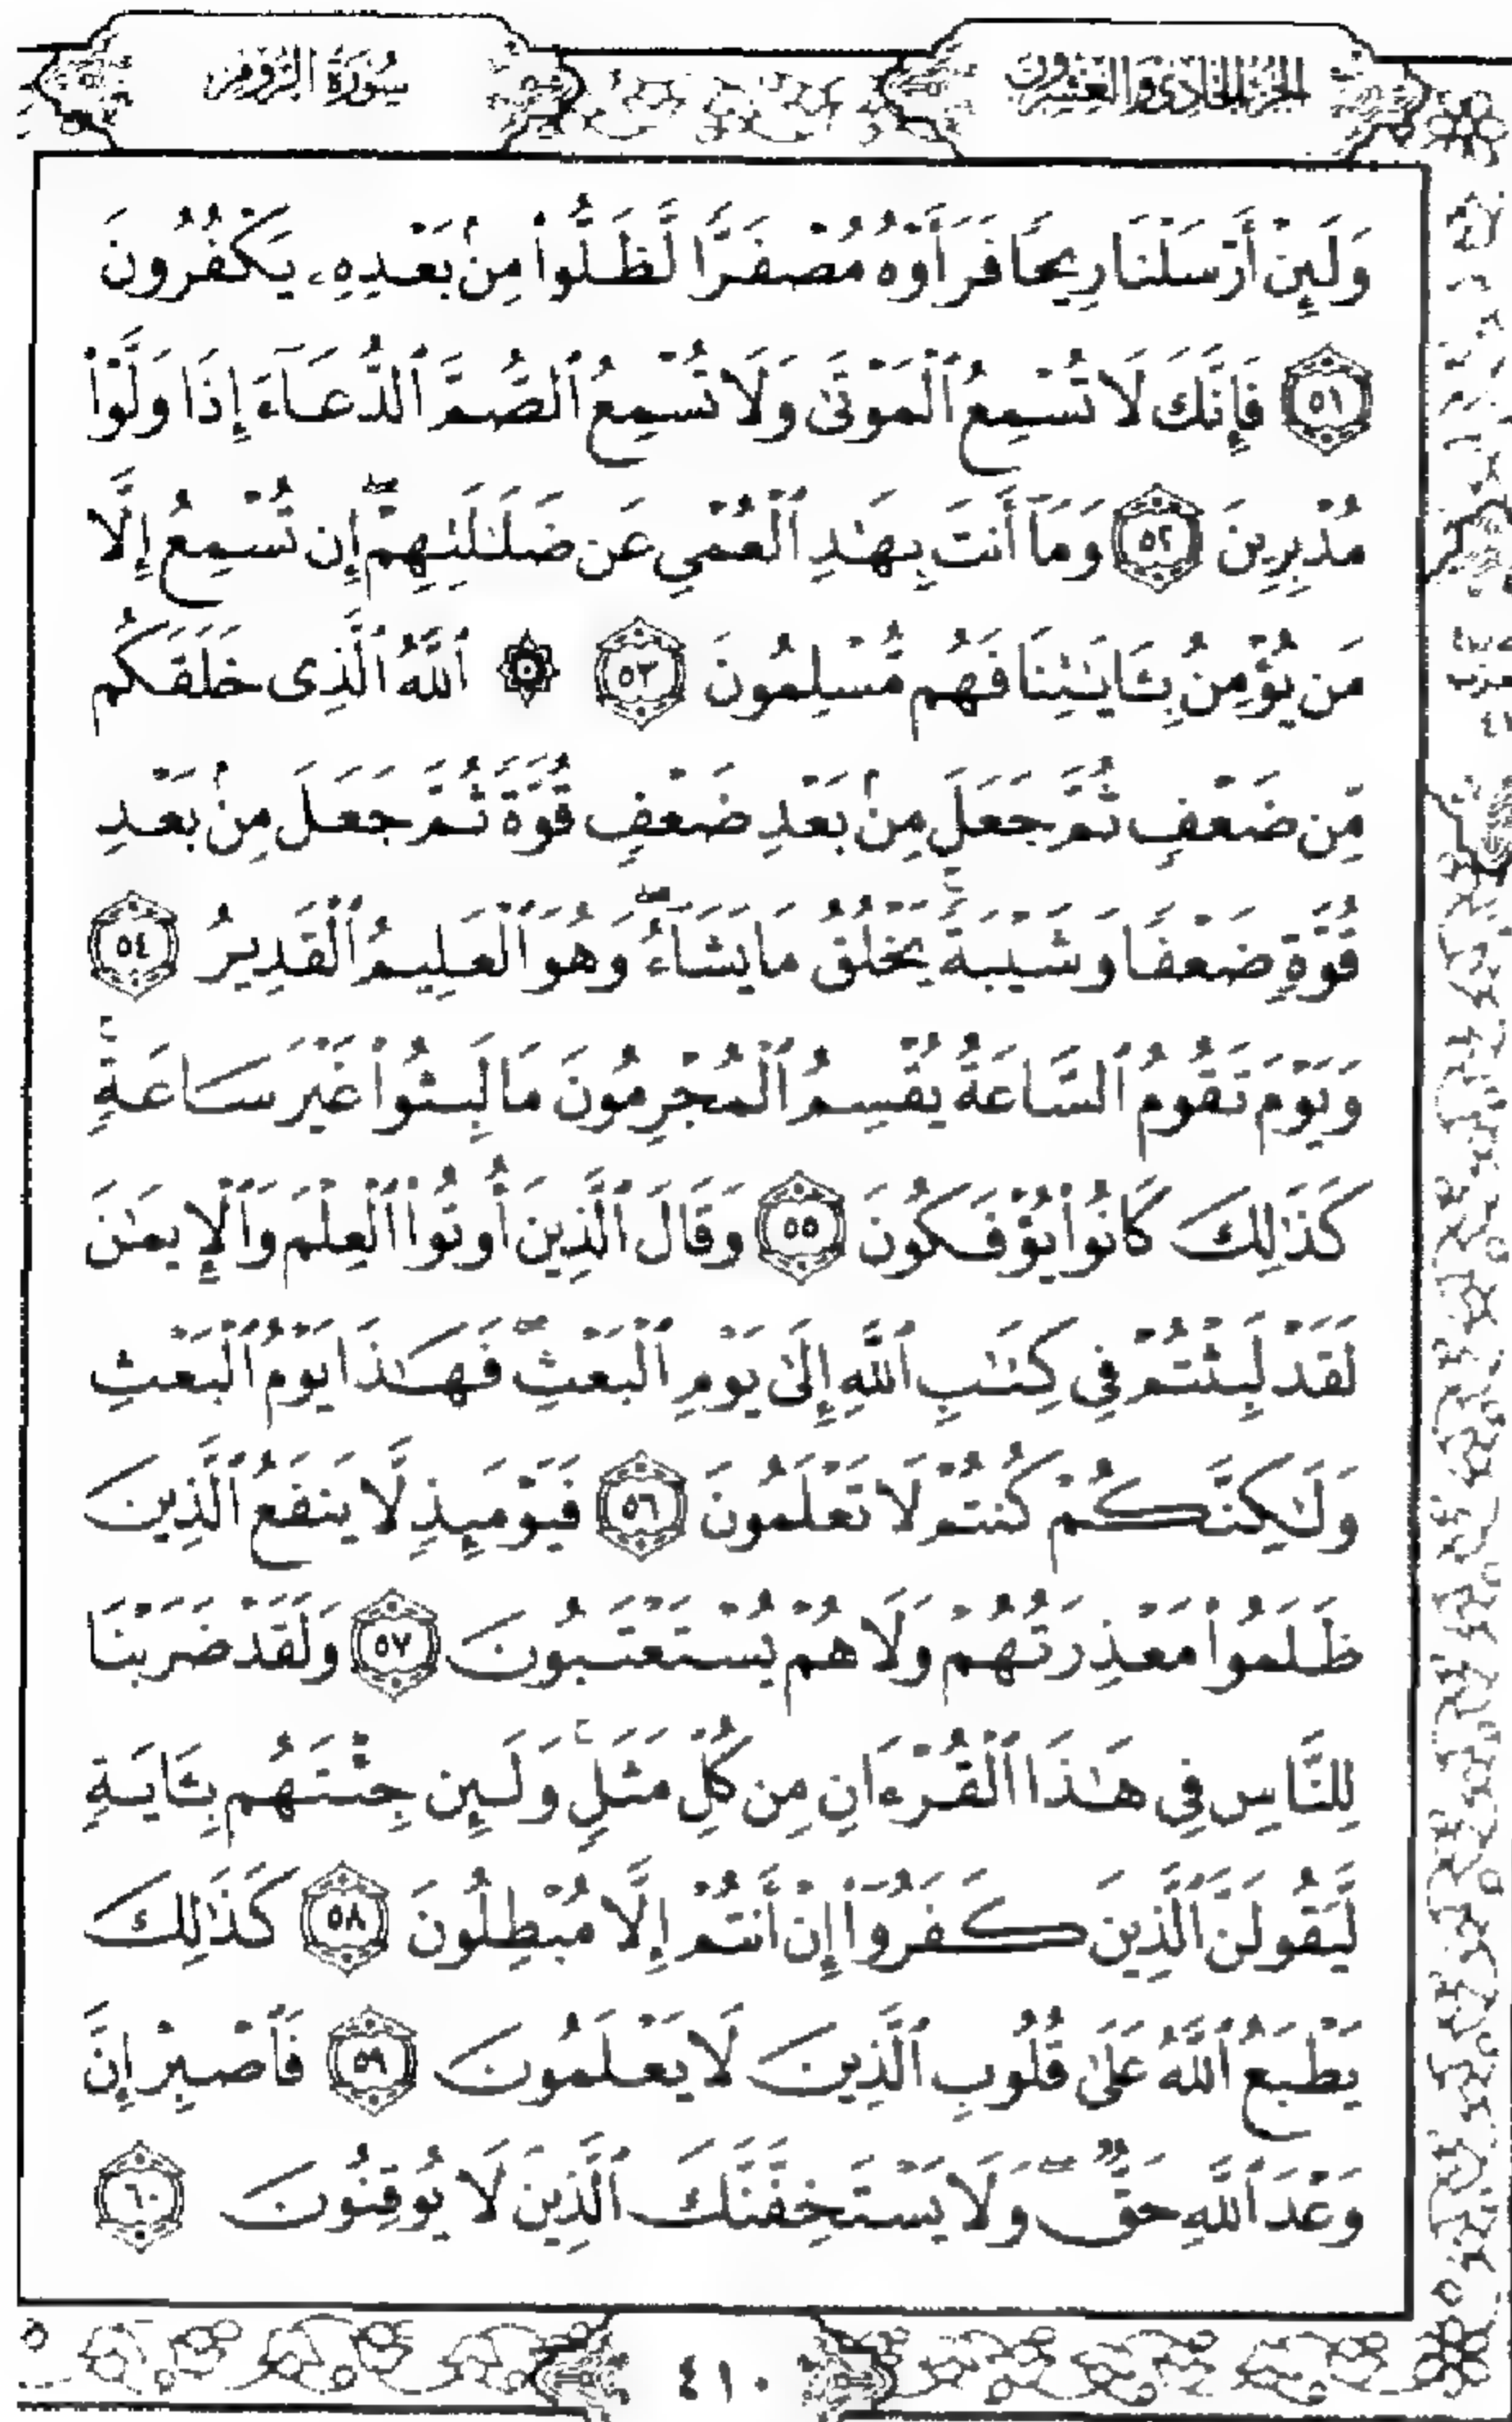 الجزء الحادي والعشرون
سُورَةُ الرُّومِ
وَلَئِنْ أَرْسَلْنَا رِيحًا فَرَأَوْهُ مُصْفَرًّا لَّظَلُّوا۟ مِنۢ بَعْدِهِۦ يَكْفُرُونَ
٥١ فَإِنَّكَ لَا تُسْمِعُ ٱلْمَوْتَىٰ وَلَا تُسْمِعُ ٱلصُّمَّ ٱلدُّعَآءَ إِذَا وَلَّوْا۟
مُدْبِرِينَ ٥٢ وَمَآ أَنتَ بِهَـٰدِ ٱلْعُمْىِ عَن ضَلَـٰلَتِهِمْ ۖ إِن تُسْمِعُ إِلَّا
مَن يُؤْمِنُ بِـَٔايَـٰتِنَا فَهُم مُّسْلِمُونَ ٥٣ ۞ ٱللَّهُ ٱلَّذِى خَلَقَكُم
مِّن ضَعْفٍ ثُمَّ جَعَلَ مِنۢ بَعْدِ ضَعْفٍ قُوَّةً ثُمَّ جَعَلَ مِنۢ بَعْدِ
قُوَّةٍ ضَعْفًا وَشَيْبَةً ۚ يَخْلُقُ مَا يَشَآءُ ۖ وَهُوَ ٱلْعَلِيمُ ٱلْقَدِيرُ ٥٤
وَيَوْمَ تَقُومُ ٱلسَّاعَةُ يُقْسِمُ ٱلْمُجْرِمُونَ مَا لَبِثُوا۟ غَيْرَ سَاعَةٍ ۚ
كَذَٰلِكَ كَانُوا۟ يُؤْفَكُونَ ٥٥ وَقَالَ ٱلَّذِينَ أُوتُوا۟ ٱلْعِلْمَ وَٱلْإِيمَـٰنَ
لَقَدْ لَبِثْتُمْ فِى كِتَـٰبِ ٱللَّهِ إِلَىٰ يَوْمِ ٱلْبَعْثِ ۖ فَهَـٰذَا يَوْمُ ٱلْبَعْثِ
وَلَـٰكِنَّكُمْ كُنتُمْ لَا تَعْلَمُونَ ٥٦ فَيَوْمَئِذٍ لَّا يَنفَعُ ٱلَّذِينَ
ظَلَمُوا۟ مَعْذِرَتُهُمْ وَلَا هُمْ يُسْتَعْتَبُونَ ٥٧ وَلَقَدْ ضَرَبْنَا
لِلنَّاسِ فِى هَـٰذَا ٱلْقُرْءَانِ مِن كُلِّ مَثَلٍ ۚ وَلَئِن جِئْتَهُم بِـَٔايَةٍ
لَّيَقُولَنَّ ٱلَّذِينَ كَفَرُوٓا۟ إِنْ أَنتُمْ إِلَّا مُبْطِلُونَ ٥٨ كَذَٰلِكَ
يَطْبَعُ ٱللَّهُ عَلَىٰ قُلُوبِ ٱلَّذِينَ لَا يَعْلَمُونَ ٥٩ فَٱصْبِرْ إِنَّ
وَعْدَ ٱللَّهِ حَقٌّ ۖ وَلَا يَسْتَخِفَّنَّكَ ٱلَّذِينَ لَا يُوقِنُونَ ٦٠
٤١٠